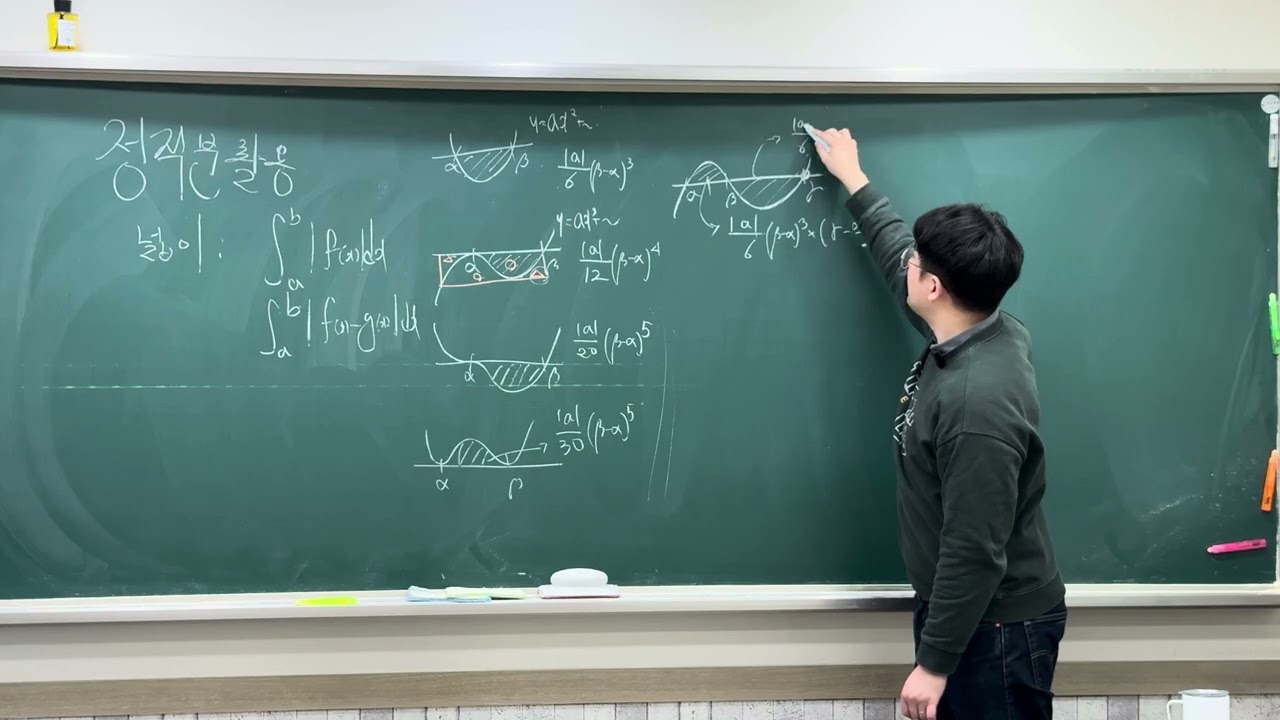 정적분 공식
넓이 : ∫_a^b |f(x)|dx
∫_a^b |f(x)-g(x)|dx
y=ax²+~
α β
|a|/6 (β-α)³
y=ax³+~
α β
|a|/12 (β-α)⁴
α β
|a|/20 (β-α)⁵
|a|/30 (β-α)⁵
α β
|a|/6
α β γ
|a|/6 (β-α)³×(γ-